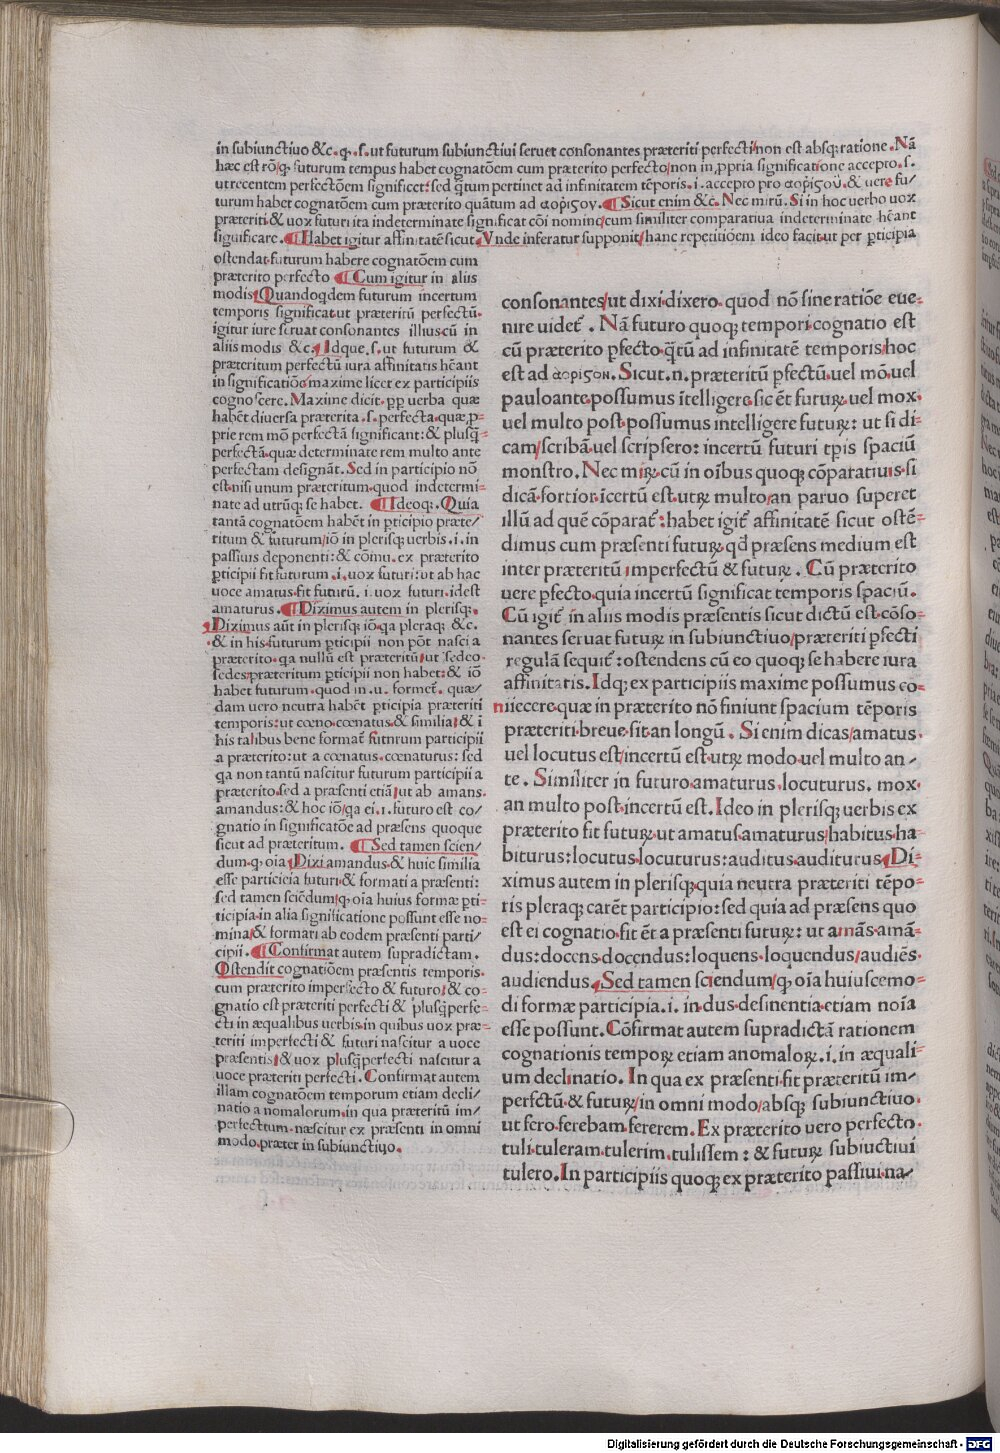 in subiunctiuo &c. ꝙ. ſ. ut futurum ſubiunctiui ſeruet conſonantes præteriti perfecti/non eſt abſqꝫ ratione. Nã
hæc eſt rõ/ꝙ futurum tempus habet cognatõem cum præterito perfecto/non in ꝓpria ſignificatione accepto. ſ.
ut recentem perfectõem ſignificet: ſed q̃tum pertinet ad infinitatem tẽporis. i. accepto pro αορίϛου. & uere fu/
turum habet cognatõem cum præterito quãtum ad αορίϛου. Sicut enim &c. Nec mirũ. Si in hoc uerbo uox
præteriti & uox futuri ita indeterminate ſignificat cõi nomine/cum ſimiliter comparatiua indeterminate hẽant
ſignificare. Habet igitur affinitatẽ ſicut. Vnde inferatur ſupponit/hanc repetitiõem ideo facit ut per ꝑticipia
oſtendat futurum habere cognatõem cum
præterito perfecto Cum igitur in aliis
modis Quandoqdem futurum incertum
temporis ſignificat ut præteritũ perfectũ.
igitur iure ſeruat conſonantes illius cũ in
aliis modis &c. Idque. ſ. ut futurum &
præteritum perfectũ iura affinitatis hẽant
in ſignificatiõe maxime licet ex participiis
cognoſcere. Maxime dicit. ꝓꝑ uerba quæ
habẽt diuerſa præterita. ſ. perfecta. quæ ꝓ-
prie rem mõ perfectã ſignificant: & pluſq̃-
perfectã. quæ determinate rem multo ante
perfectam deſignãt. Sed in participio nõ
eſt niſi unum præteritum. quod indetermi-
nate ad utrũqꝫ ſe habet. Ideoqꝫ. Quia
tantã cognatõem habẽt in ꝑticipio præte/
ritum & futurum/iõ in pleriſqꝫ uerbis. i. in
paſſiuis deponenti: & cõmu. ex præterito
ꝑticipii fit futurum. i. uox futuri: ut ab hac
uoce amatus fit futurũ. i. uox futuri. ideſt
amaturus. Diximus autem in pleriſqꝫ.
Diximus aũt in pleriſqꝫ iõ. qa pleraqꝫ &c.
& in his futurum ꝑticipii non põt naſci a
præterito. qa nullũ eſt præteritũ/ut ſedeo.
ſedes/præteritum ꝑticipii non habet: & iõ
habet futurum. quod in. u. formet̃. quæ/
dam uero neutra habẽt ꝑticipia præteriti
temporis: ut cœno. cœnatus. & ſimilia/& ĩ
his talibus bene format̃ futnrum participii
a præterito: ut a cœnatus. cœnaturus: ſed
qa non tantũ naſcitur futurum participii a
præterito. ſed a præſenti etiã/ut ab amans.
amandus: & hoc iõ/qa ei. i. futuro eſt co/
gnatio in ſignificatõe ad præſens quoque
ſicut ad præteritum. Sed tamen ſcien/
dum. ꝙ oĩa Dixi amandus & huic ſimilia
eſſe particicia futuri & formati a præſenti:
ſed tamen ſciẽdum/ꝙ oĩa huius formæ ꝑti-
ticipia in alia ſignificatione poſſunt eſſe no-
mina/& formati ab eodem præſenti parti/
cipii. Confirmat autem ſupradictam.
Oſtendit cognatiõem præſentis temporis.
cum præterito imperfecto & futuro/& co-
gnatio eſt præteriti perfecti & pluſq̃perfe-
cti in æqualibus uerbis in quibus uox præ-
teriti imperfecti & futuri naſcitur a uoce
præſentis/& uox pluſq̃perfecti naſcitur a
uoce præteriti perfecti. Confirmat autem
illam cognatõem temporum etiam decli/
natio anomalorum. in qua præteritũ im/
perfecttum naſcitur ex præſenti in omni
modo præter in ſubiunctiuo.
conſonantes/ut dixi dixero. quod nõ ſine ratiõe eue-
nire uidet̃. Nã futuro quoqꝫ tempori cognatio eſt
cũ præterito ꝑfecto q̃tũ ad infinitatẽ temporis/hoc
eſt ad αοριϛον. Sicut. n. præteritũ ꝑfectũ. uel mõ uel
pauloante poſſumus ĩtelligere. ſic ẽt futurꝵ. uel mox
uel multo poſt poſſumus intelligere futurꝵ: ut ſi di-
cam/ſcribã. uel ſcripſero: incertũ futuri tꝑis ſpaciũ
monſtro. Nec mirꝵ. cũ in oĩbus quoqꝫ cõparatiuis ſi
dicã fortior. ĩcertũ eſt utrꝵ multo/an paruo ſuperet
illũ ad quẽ cõparat̃: habet igit̃ affinitatẽ ſicut oſtẽ-
dimus cum præſenti futurꝵ. qd præſens medium eſt
inter præteritũ imperfectũ & futurꝵ. Cũ præterito
uere ꝑfecto quia incertũ ſignificat temporis ſpaciũ.
Cũ igit̃ in aliis modis præſentis ſicut dictũ eſt cõſo-
nantes ſeruat futurꝵ in ſubiunctiuo/præteriti ꝑfecti
regulã ſequit̃: oſtendens cũ eo quoqꝫ ſe habere iura
affinitatis. Idqꝫ ex participiis maxime poſſumus cõ-
niiecere. quæ in præterito nõ finiunt ſpacium tẽporis
præteriti breue ſit an longũ. Si enim dicas/amatus.
uel locutus eſt/incertũ eſt utrꝵ modo uel multo an/
te. Similiter in futuro amaturus. locuturus. mox.
an multo poſt incertũ eſt. Ideo in pleriſqꝫ uerbis ex
præterito fit futurꝵ ut amatus amaturus/habitus ha-
biturus: locutus locuturus: auditus auditurus Di-
ximus autem in pleriſqꝫ quia neutra præteriti tẽpo-
ris pleraqꝫ carẽt participio: ſed quia ad præſens quo
eſt ei cognatio fit ẽt a præſenti futurꝵ: ut amãs amã-
dus: docens docendus: loquens loquendus/audiẽs.
audiendus Sed tamen ſciendum/ꝙ oĩa huiuſcemo-
di formæ participia. i. in dus deſinentia etiam noĩa
eſſe poſſunt. Cõfirmat autem ſupradictã rationem
cognationis temporꝵ etiam anomalorꝵ. i. in æquali-
um declinatio. In qua ex præſenti fit præteritũ im-
perfctũ. & futurꝵ/in omni modo/abſqꝫ ſubiunctiuo.
ut fero. ferebam. fererem. Ex præterito uero perfecto.
tuli. tuleram. tulerim. tuliſſem: & futurꝵ ſubiuctiui
tulero. In participiis quoqꝫ ex præterito paſſiui na/
Digitalisierung gefördert durch die Deutsche Forschungsgemeinschaft - DFG